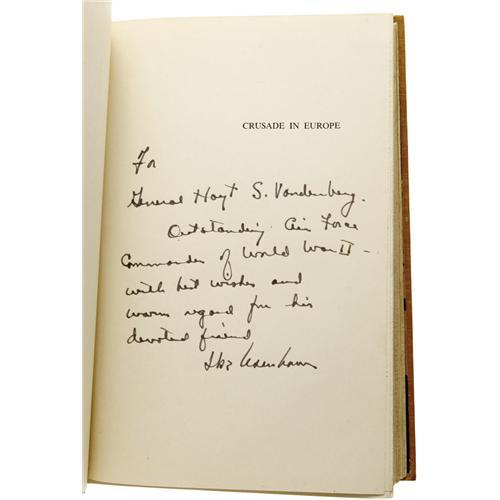 CRUSADE IN EUROPE
For
General Hoyt S. Vandenberg.
Outstanding Air Force
Commander of World War II -
with best wishes and
warm regard from his
devoted friend
Ike Eisenhower